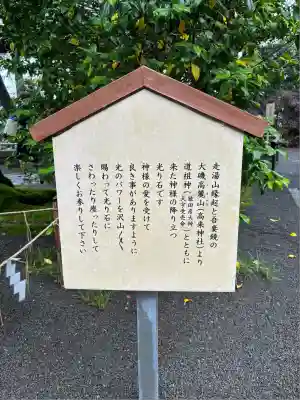 走湯山縁起と吾妻鏡の
大磯高麗山(高来神社)より
道祖神(猿田彦大神 天宇受売命)とともに
来た神様の降り立つ
光り石です
神様の愛を受けて
良き事がありますように
光のパワーを沢山
賜わって光り石に
さわったり座ったりして
楽しくお参りして下さい